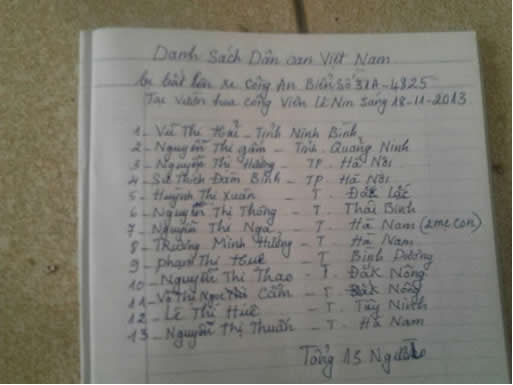 Danh Sách Dân oan Việt Nam
bị bắt lên xe Công An Biển Số 31A-4825
Tại Vườn hoa Công Viên Lê Nin Sáng 18-11-2013
1- Vũ Thị Hải - Tỉnh Ninh Bình
2- Nguyễn Thị gấm - Tỉnh. Quảng Ninh
3- Nguyễn Thị Hường - TP. Hà Nội
4- Sư Thích Đàm Bình - TP. Hà Nội
5- Huỳnh Thị Xuân - T. Đắk Lắc
6- Nguyễn Thị Thống - T. Thái Bình
7- Nguyễn Thị Nga - T. Hà Nam (2 mẹ con)
8- Trương Minh Hưởng - T. Hà Nam
9- phạm Thị Huê - T. Bình Dương
10- Nguyễn Thị Thao - T. Đắk Nông
11- Võ Thị Ngọc Cẩm - T. Đắk Nông
12- Lê Thị Huê - T. Tây Ninh
13- Nguyễn Thị Thuấn - T. Hà Nam
Tổng 13 Người